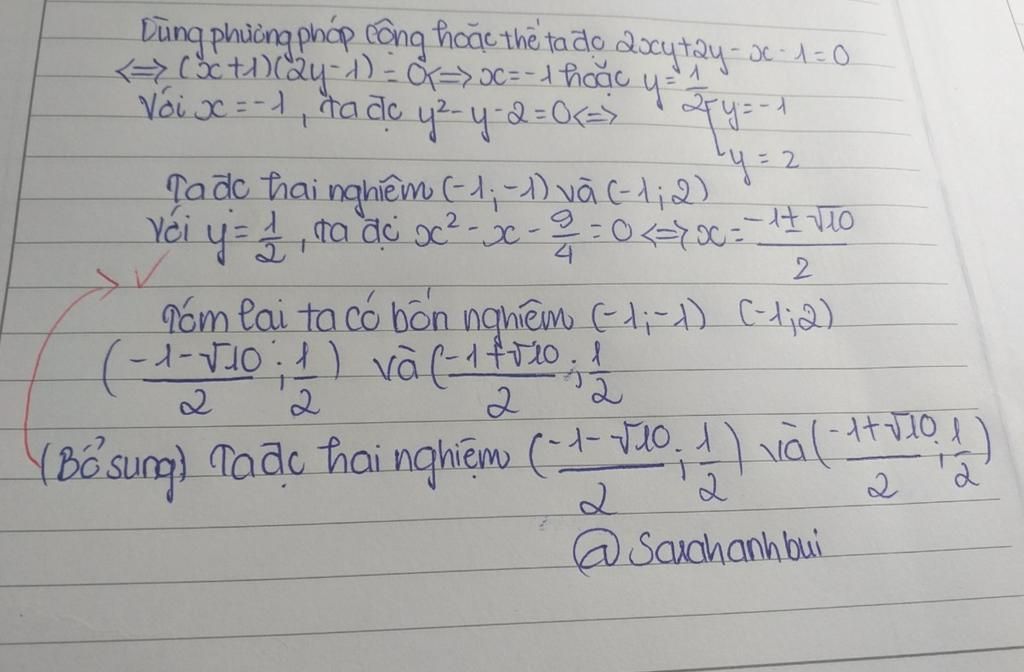 Dùng phương pháp cộng hoặc thế ta đc 2xy+2y-x-1=0
<=> (x+1)(2y-1)=0<=>x=-1 hoặc y=1/2
Với x=-1, ta đc y²-y-2=0<=> [y=-1
y=2
Ta đc hai nghiệm (-1;-1) và (-1;2)
Với y=1/2, ta đc x²-x-9/4=0<=>x=(-1±√10)/2
Tóm lại ta có bốn nghiệm (-1;-1) (-1;2)
((-1-√10)/2;1/2) và ((-1+√10)/2;1/2
(Bổ sung) Ta đc hai nghiệm ((-1-√10)/2;1/2) và ((-1+√10)/2;1/2)
@Sauhanhbui